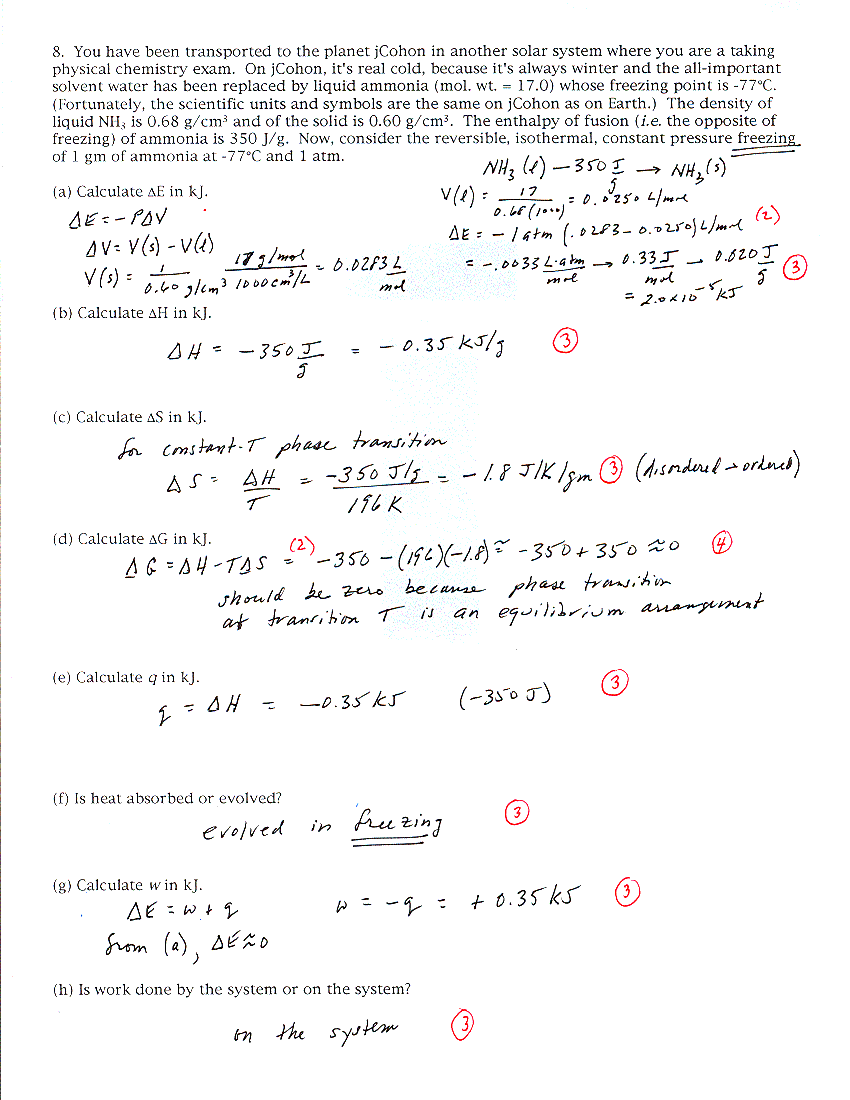 8. You have been transported to the planet jCohon in another solar system where you are a taking
physical chemistry exam. On jCohon, it's real cold, because it's always winter and the all-important
solvent water has been replaced by liquid ammonia (mol. wt. = 17.0) whose freezing point is -77°C.
(Fortunately, the scientific units and symbols are the same on jCohon as on Earth.) The density of
liquid NH₃ is 0.68 g/cm³ and of the solid is 0.60 g/cm³. The enthalpy of fusion (i.e. the opposite of
freezing) of ammonia is 350 J/g. Now, consider the reversible, isothermal, constant pressure freezing
of 1 gm of ammonia at -77°C and 1 atm.
NH₃ (l) – 350 J/g → NH₃(s)
(a) Calculate ΔE in kJ.
V(l) = 17 / 0.68(1000) = 0.0250 L/mol
ΔE = - PΔV
ΔE = - 1 atm (.0283 – 0.0250) L/mol (2)
ΔV = V(s) - V(l)
V(s) = 1 / 0.60 g/cm³ 17 g/mol / 1000 cm³/L = 0.0283 L/mol
= -.0033 L·atm/mol → 0.33 J/mol → 0.020 J/g (3)
= 2.0 x 10⁻⁵ kJ
(b) Calculate ΔH in kJ.
ΔH = -350 J/g = - 0.35 kJ/g (3)
(c) Calculate ΔS in kJ.
for constant-T phase transition
ΔS = ΔH/T = -350 J/g / 196 K = - 1.8 J/K/gm (3) (disordered → ordered)
(d) Calculate ΔG in kJ.
ΔG = ΔH - TΔS = (2) -350 - (196)(-1.8) ≈ -350 + 350 ≈ 0 (4)
should be zero because phase transition
at transition T is an equilibrium arrangement
(e) Calculate q in kJ.
q = ΔH = -0.35 kJ (-350 J) (3)
(f) Is heat absorbed or evolved?
evolved in freezing (3)
(g) Calculate w in kJ.
ΔE = w + q w = - q = + 0.35 kJ (3)
from (a), ΔE≈0
(h) Is work done by the system or on the system?
on the system (3)